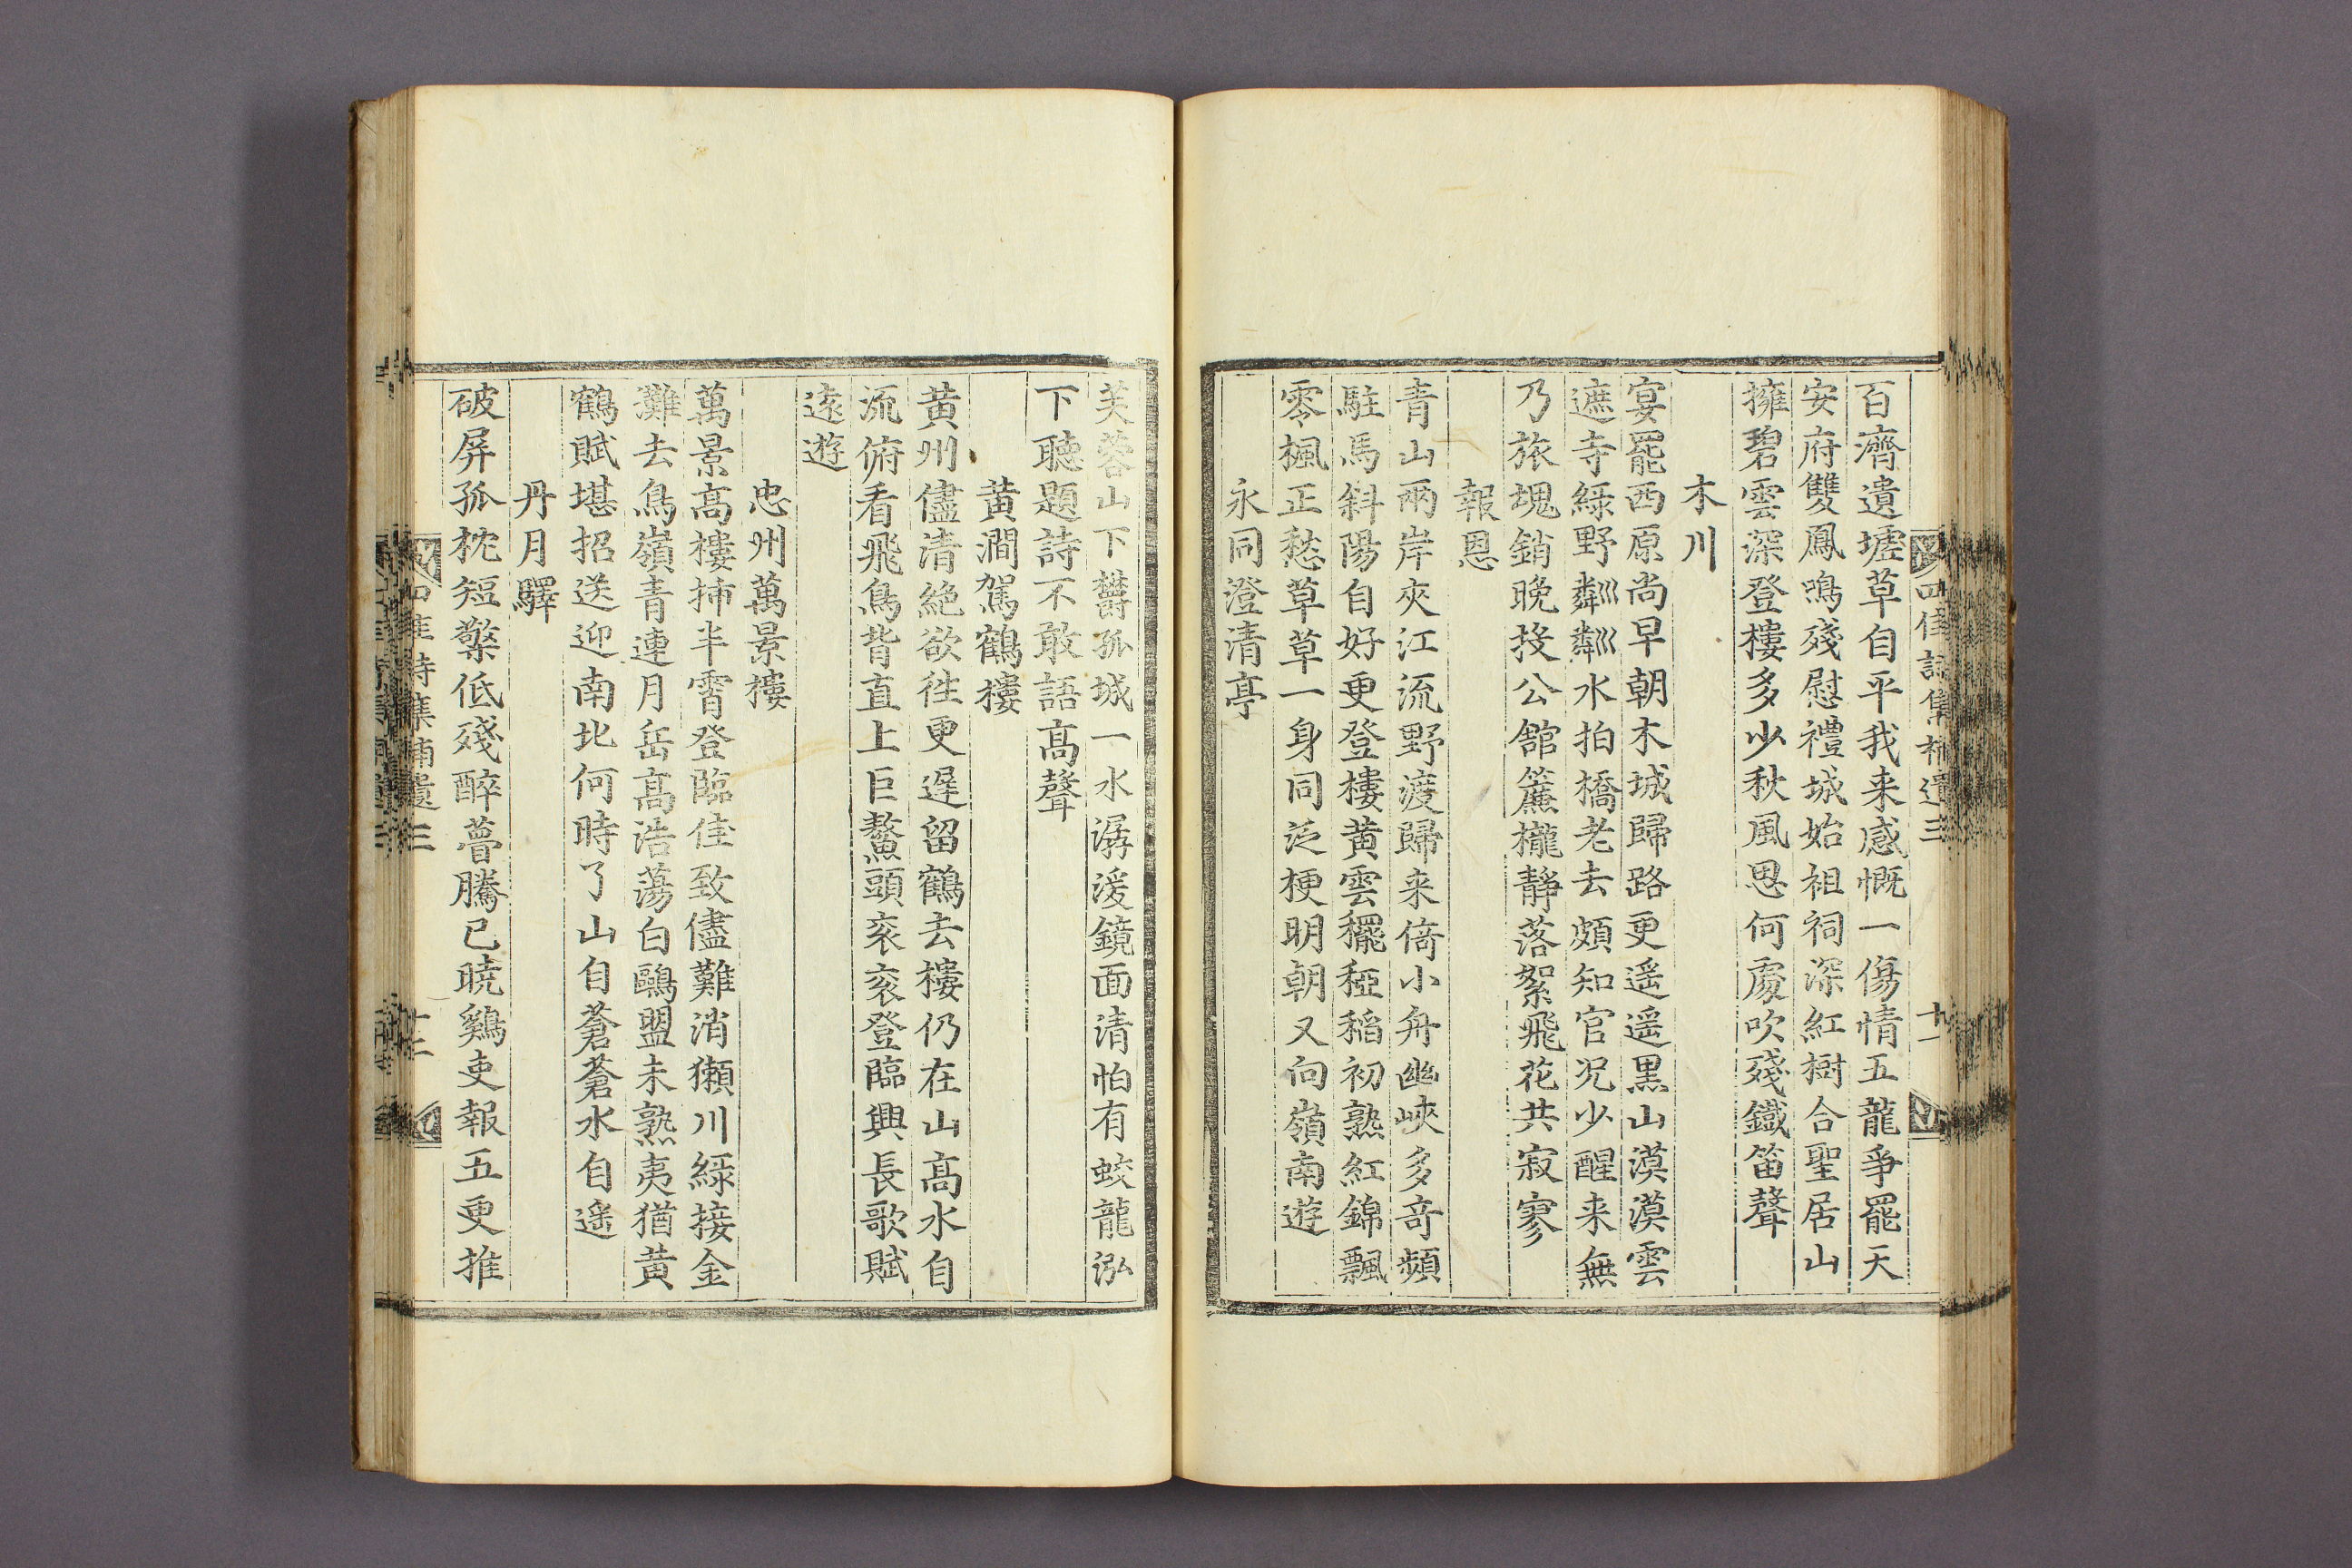 百濟遺墟草自平我来感慨一傷情五龍爭罷天
安府雙鳳鳴殘慰禮城始祖祠深紅樹合聖居山
擁碧雲深登樓多少秋風思何處吹殘鐵笛聲
木川
宴罷西原尚早朝木城歸路更遥遥黒山漠漠雲
遮寺綠野粼粼水拍橋老去頗知官况少醒来無
乃旅魂銷晚投公舘簾櫳靜落絮飛花共寂寥
報恩
青山兩岸夾江流野渡歸来倚小舟幽峽多奇頻
駐馬斜陽自好更登樓黄雲䆉稏稻初熟紅錦飄
零楓正愁草草一身同泛梗明朝又向嶺南遊
永同澄清亭
芙蓉山下鬱孤城一水潺湲鏡面清怕有蛟龍泓
下聽題詩不敢語髙聲
黄澗駕鶴樓
黄州儘清絶欲徃更遅留鶴去樓仍在山髙水自
流俯看飛鳥背直上巨鰲頭衮衮登臨興長歌賦
逺遊
忠州萬景樓
萬景髙樓揷半霄登臨佳致儘難消獺川綠接金
灘去鳥嶺青連月岳髙浩蕩白鷗盟未熟夷猶黄
鶴賦堪招送迎南北何時了山自蒼蒼水自遥
丹月驛
破屏孤枕短檠低殘醉瞢騰已曉鷄吏報五更推